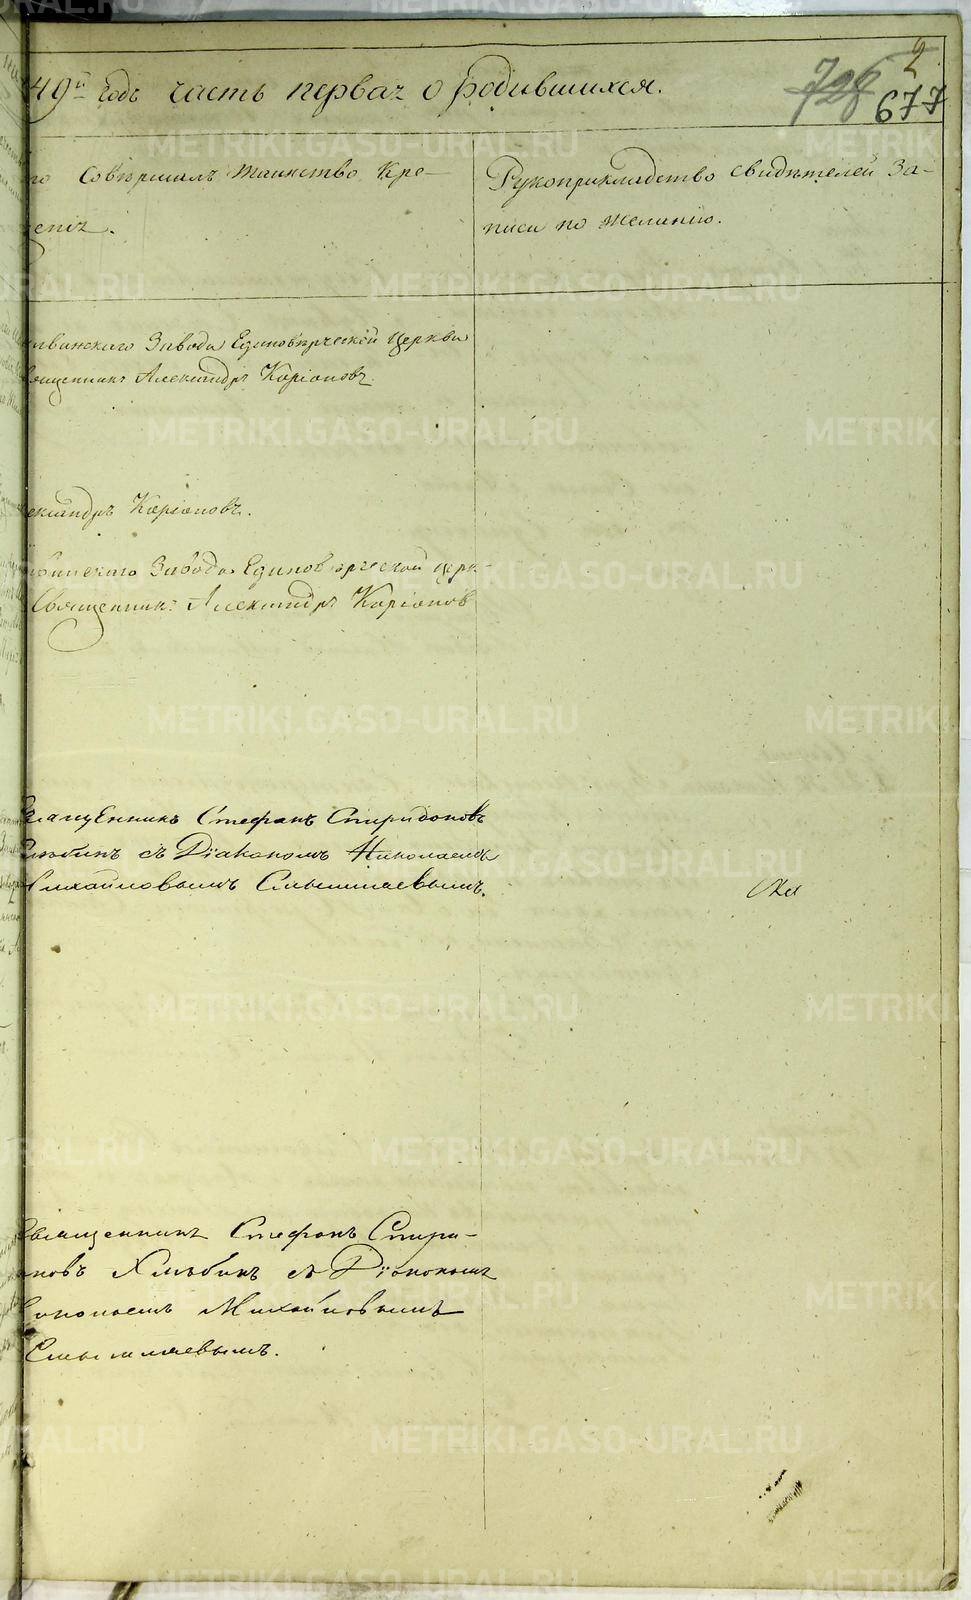 2
49й годъ часть первая о родившихся.
728
677
го Совершалъ таинство Кре-
щенія.
Рукоприкладство свидѣтелей За-
писи по желанію.
Завода Единовѣрческой церкви
священникъ Александръ Каріоновъ.
ександръ Каріоновъ.
Завода Единовѣрческой церк-
Священникъ Александръ Каріоновъ
Священникъ Стефанъ Спиридоновъ
Хлѣбинъ съ Діакономъ Николаемъ
Михайловымъ Смышляевымъ.
Священникъ Стефанъ Спири-
оновъ Хлѣбинъ съ Діакономъ
Николаемъ Михайловымъ
Смышляевымъ.
METRIKI.GASO-URAL.RU